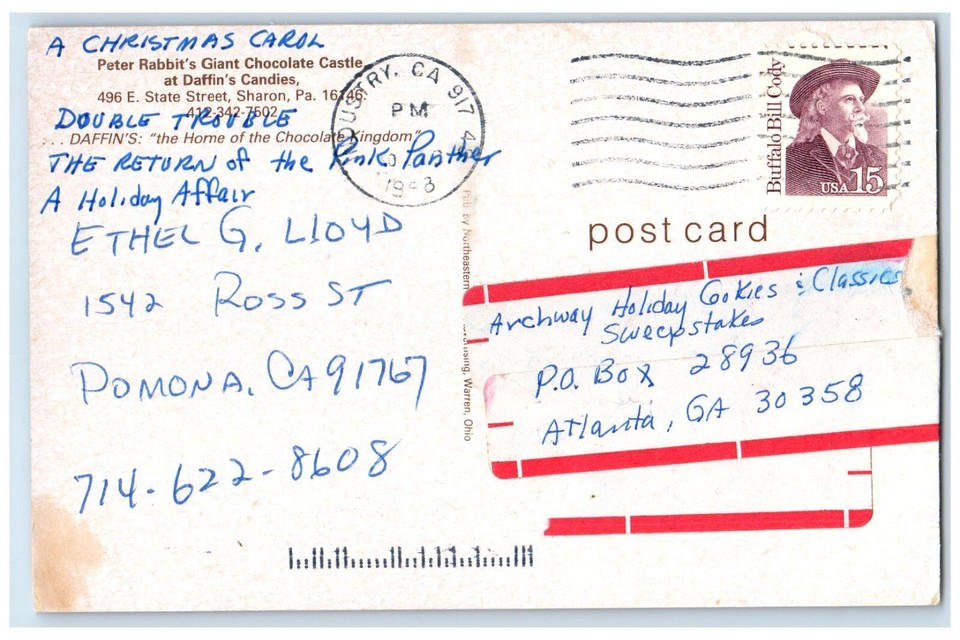 A CHRISTMAS CAROL
Peter Rabbit's Giant Chocolate Castle
at Daffin's Candies,
496 E. State Street, Sharon, Pa. 16146
412-342-7502
DOUBLE TROUBLE
. . . DAFFIN'S: "the Home of the Chocolate Kingdom"
THE RETURN of the Pink Panther
A Holiday Affair
ETHEL G. LLOYD
1542 ROSS ST
POMONA, CA 91767
714-622-8608
USTRY, CA 917
PM
Buffalo Bill Cody
USA 15
post card
Pub by Northeastern
ertising, Warren, Ohio
Archway Holiday Cookies & Classics
Sweepstakes
P.O. Box 28936
Atlanta, GA 30358